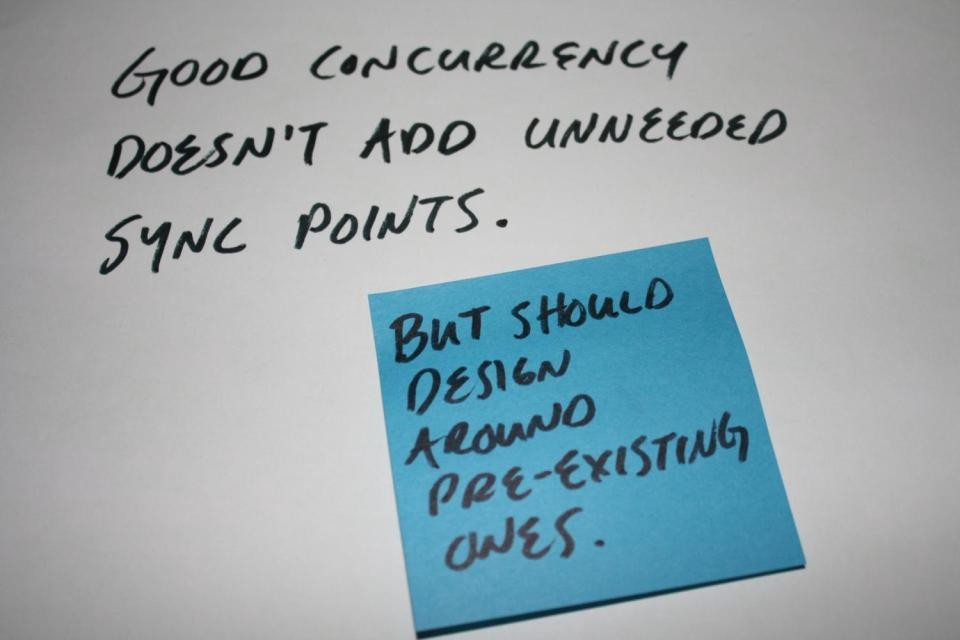 GOOD CONCURRENCY
DOESN'T ADD UNNEEDED
SYNC POINTS.
BUT SHOULD
DESIGN
AROUND
PRE-EXISTING
ONES.